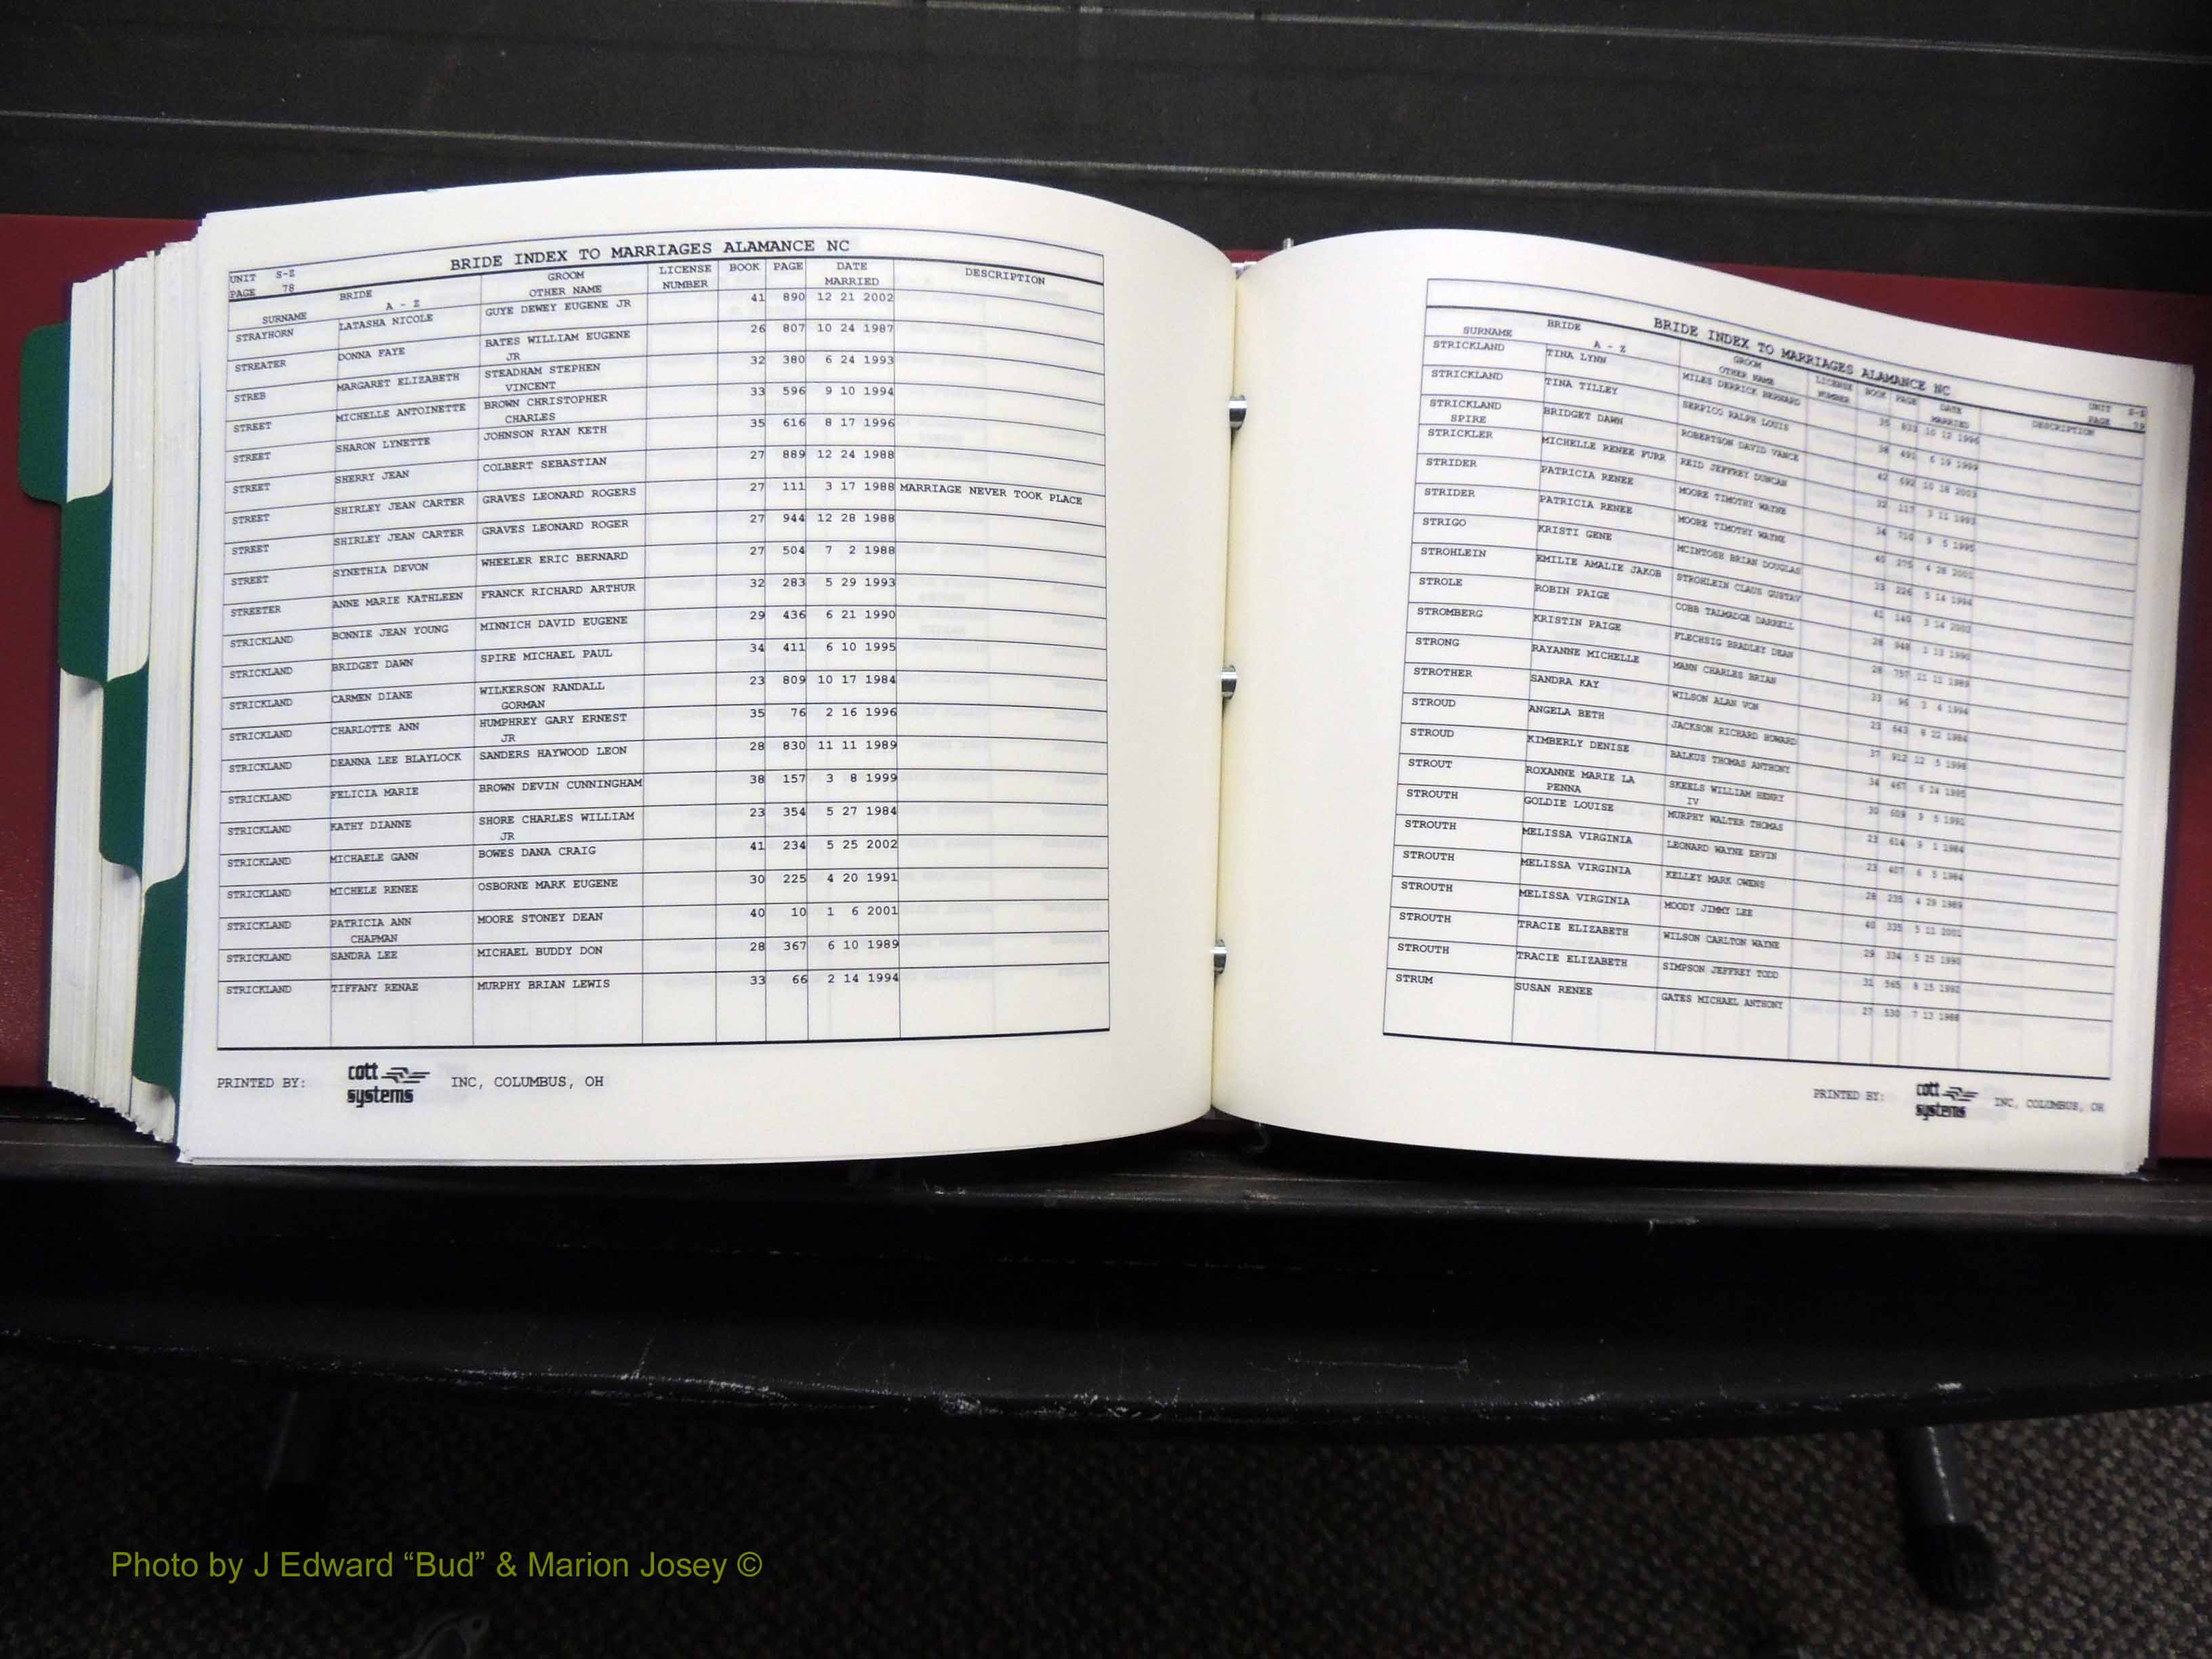 BRIDE INDEX TO MARRIAGES ALAMANCE NC
UNIT S-Z
PAGE 78
SURNAME BRIDE A - Z GROOM OTHER NAME LICENSE NUMBER BOOK PAGE DATE MARRIED DESCRIPTION
STRAYHORN LATASHA NICOLE GUYE DEWEY EUGENE JR 41 890 12 21 2002
STREATER DONNA FAYE BATES WILLIAM EUGENE JR 26 807 10 24 1987
STREB MARGARET ELIZABETH STEADHAM STEPHEN VINCENT 32 380 6 24 1993
STREET MICHELLE ANTOINETTE BROWN CHRISTOPHER CHARLES 33 596 9 10 1994
STREET SHARON LYNETTE JOHNSON RYAN KETH 35 616 8 17 1996
STREET SHERRY JEAN COLBERT SEBASTIAN 27 889 12 24 1988
STREET SHIRLEY JEAN CARTER GRAVES LEONARD ROGERS 27 111 3 17 1988 MARRIAGE NEVER TOOK PLACE
STREET SHIRLEY JEAN CARTER GRAVES LEONARD ROGER 27 944 12 28 1988
STREET SYNETHIA DEVON WHEELER ERIC BERNARD 27 504 7 2 1988
STREETER ANNE MARIE KATHLEEN FRANCK RICHARD ARTHUR 32 283 5 29 1993
STRICKLAND BONNIE JEAN YOUNG MINNICH DAVID EUGENE 29 436 6 21 1990
STRICKLAND BRIDGET DAWN SPIRE MICHAEL PAUL 34 411 6 10 1995
STRICKLAND CARMEN DIANE WILKERSON RANDALL GORMAN 23 809 10 17 1984
STRICKLAND CHARLOTTE ANN HUMPHREY GARY ERNEST JR 35 76 2 16 1996
STRICKLAND DEANNA LEE BLAYLOCK SANDERS HAYWOOD LEON 28 830 11 11 1989
STRICKLAND FELICIA MARIE BROWN DEVIN CUNNINGHAM 38 157 3 8 1999
STRICKLAND KATHY DIANNE SHORE CHARLES WILLIAM JR 23 354 5 27 1984
STRICKLAND MICHAELE GANN BOWES DANA CRAIG 41 234 5 25 2002
STRICKLAND MICHELE RENEE OSBORNE MARK EUGENE 30 225 4 20 1991
STRICKLAND PATRICIA ANN CHAPMAN MOORE STONEY DEAN 40 10 1 6 2001
STRICKLAND SANDRA LEE MICHAEL BUDDY DON 28 367 6 10 1989
STRICKLAND TIFFANY RENAE MURPHY BRIAN LEWIS 33 66 2 14 1994
PRINTED BY: cott systems INC, COLUMBUS, OH
BRIDE INDEX TO MARRIAGES ALAMANCE NC
UNIT
PAGE 79
SURNAME BRIDE A - Z GROOM OTHER NAME LICENSE NUMBER BOOK PAGE DATE MARRIED DESCRIPTION
STRICKLAND TINA LYNN MILES DERRICK BERNARD 35
STRICKLAND TINA TILLEY SERPICO RALPH LOUIS 6 19 1999
STRICKLAND SPIRE BRIDGET DAWN ROBERTSON DAVID VANCE 42 692
STRICKLER MICHELLE RENEE FURR REID JEFFREY DUNCAN 32
STRIDER PATRICIA RENEE MOORE TIMOTHY WAYNE 34 9 5 1995
STRIDER PATRICIA RENEE MOORE TIMOTHY WAYNE 40
STRIGO KRISTI GENE MCINTOSH BRIAN DOUGLAS
STROHLEIN EMILIE AMALIE JAKOB STROHLEIN CLAUS GUSTAV
STROLE ROBIN PAIGE COBB TALMADGE DARRELL
STROMBERG KRISTIN PAIGE FLECHSIG BRADLEY DEAN 28
STRONG RAYANNE MICHELLE MANN CHARLES BRIAN 33 96 3 4 1994
STROTHER SANDRA KAY WILSON ALAN VON 23 643 8 22 1984
STROUD ANGELA BETH JACKSON RICHARD HOWARD 37 912 12 5 1998
STROUD KIMBERLY DENISE BALKUS THOMAS ANTHONY 34 467 6 24 1995
STROUT ROXANNE MARIE LA PENNA SKEELS WILLIAM HENRY IV 30
STROUTH GOLDIE LOUISE MURPHY WALTER THOMAS 23 614 9 1 1984
STROUTH MELISSA VIRGINIA LEONARD WAYNE ERVIN 23 407 6 5 1984
STROUTH MELISSA VIRGINIA KELLEY MARK OWENS 28 235 4 29 1989
STROUTH MELISSA VIRGINIA MOODY JIMMY LEE 40 335
STROUTH TRACIE ELIZABETH WILSON CARLTON WAYNE 29 334 5 25 1990
STROUTH TRACIE ELIZABETH SIMPSON JEFFREY TODD 31 565 8 15 1992
STRUM SUSAN RENEE GATES MICHAEL ANTHONY 27 530 7 13 1988
PRINTED BY: cott systems INC, COLUMBUS, OH
Photo by J Edward “Bud” & Marion Josey ©